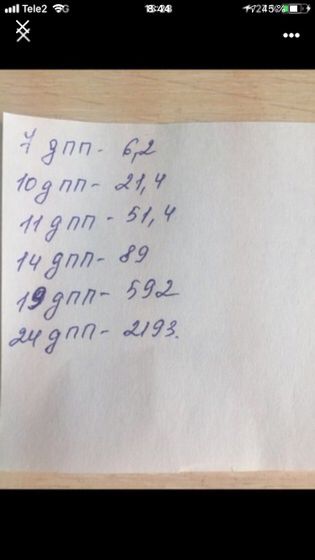 Tele2
8:44
45%
7 дпп - 6,2
10 дпп - 21,4
11 дпп - 51,4
14 дпп - 89
19 дпп - 592
24 дпп - 2193.